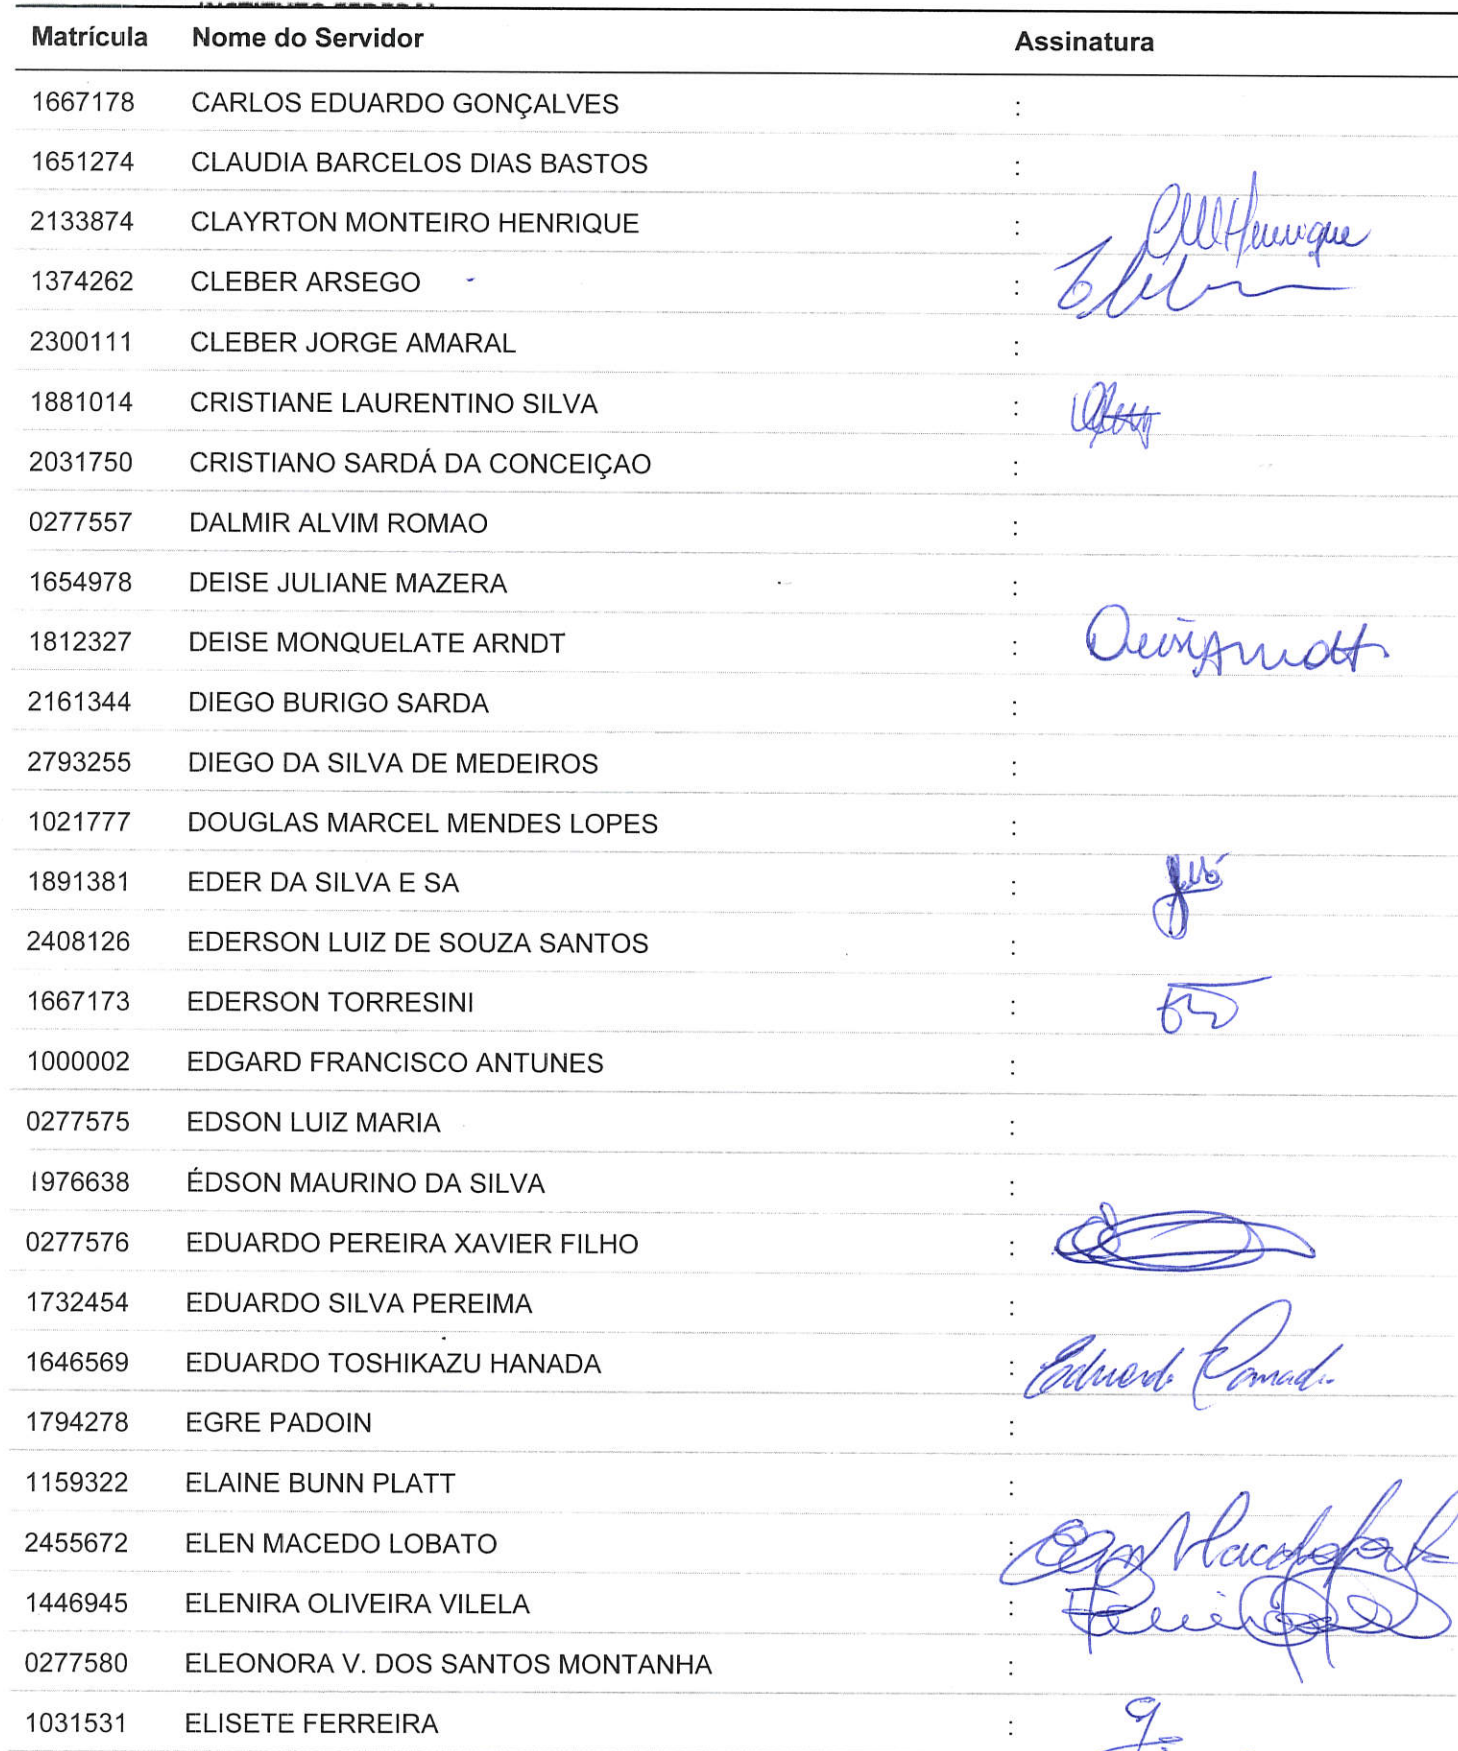 Matrícula Nome do Servidor Assinatura
1667178 CARLOS EDUARDO GONÇALVES :
1651274 CLAUDIA BARCELOS DIAS BASTOS :
2133874 CLAYRTON MONTEIRO HENRIQUE : CMHenrique
1374262 CLEBER ARSEGO :
2300111 CLEBER JORGE AMARAL :
1881014 CRISTIANE LAURENTINO SILVA :
2031750 CRISTIANO SARDÁ DA CONCEIÇAO :
0277557 DALMIR ALVIM ROMAO :
1654978 DEISE JULIANE MAZERA :
1812327 DEISE MONQUELATE ARNDT : Deise Arndt
2161344 DIEGO BURIGO SARDA :
2793255 DIEGO DA SILVA DE MEDEIROS :
1021777 DOUGLAS MARCEL MENDES LOPES :
1891381 EDER DA SILVA E SA :
2408126 EDERSON LUIZ DE SOUZA SANTOS :
1667173 EDERSON TORRESINI :
1000002 EDGARD FRANCISCO ANTUNES :
0277575 EDSON LUIZ MARIA :
1976638 ÉDSON MAURINO DA SILVA :
0277576 EDUARDO PEREIRA XAVIER FILHO :
1732454 EDUARDO SILVA PEREIMA :
1646569 EDUARDO TOSHIKAZU HANADA : Eduardo
1794278 EGRE PADOIN :
1159322 ELAINE BUNN PLATT :
2455672 ELEN MACEDO LOBATO : Elen Macedo Lobato
1446945 ELENIRA OLIVEIRA VILELA :
0277580 ELEONORA V. DOS SANTOS MONTANHA :
1031531 ELISETE FERREIRA :